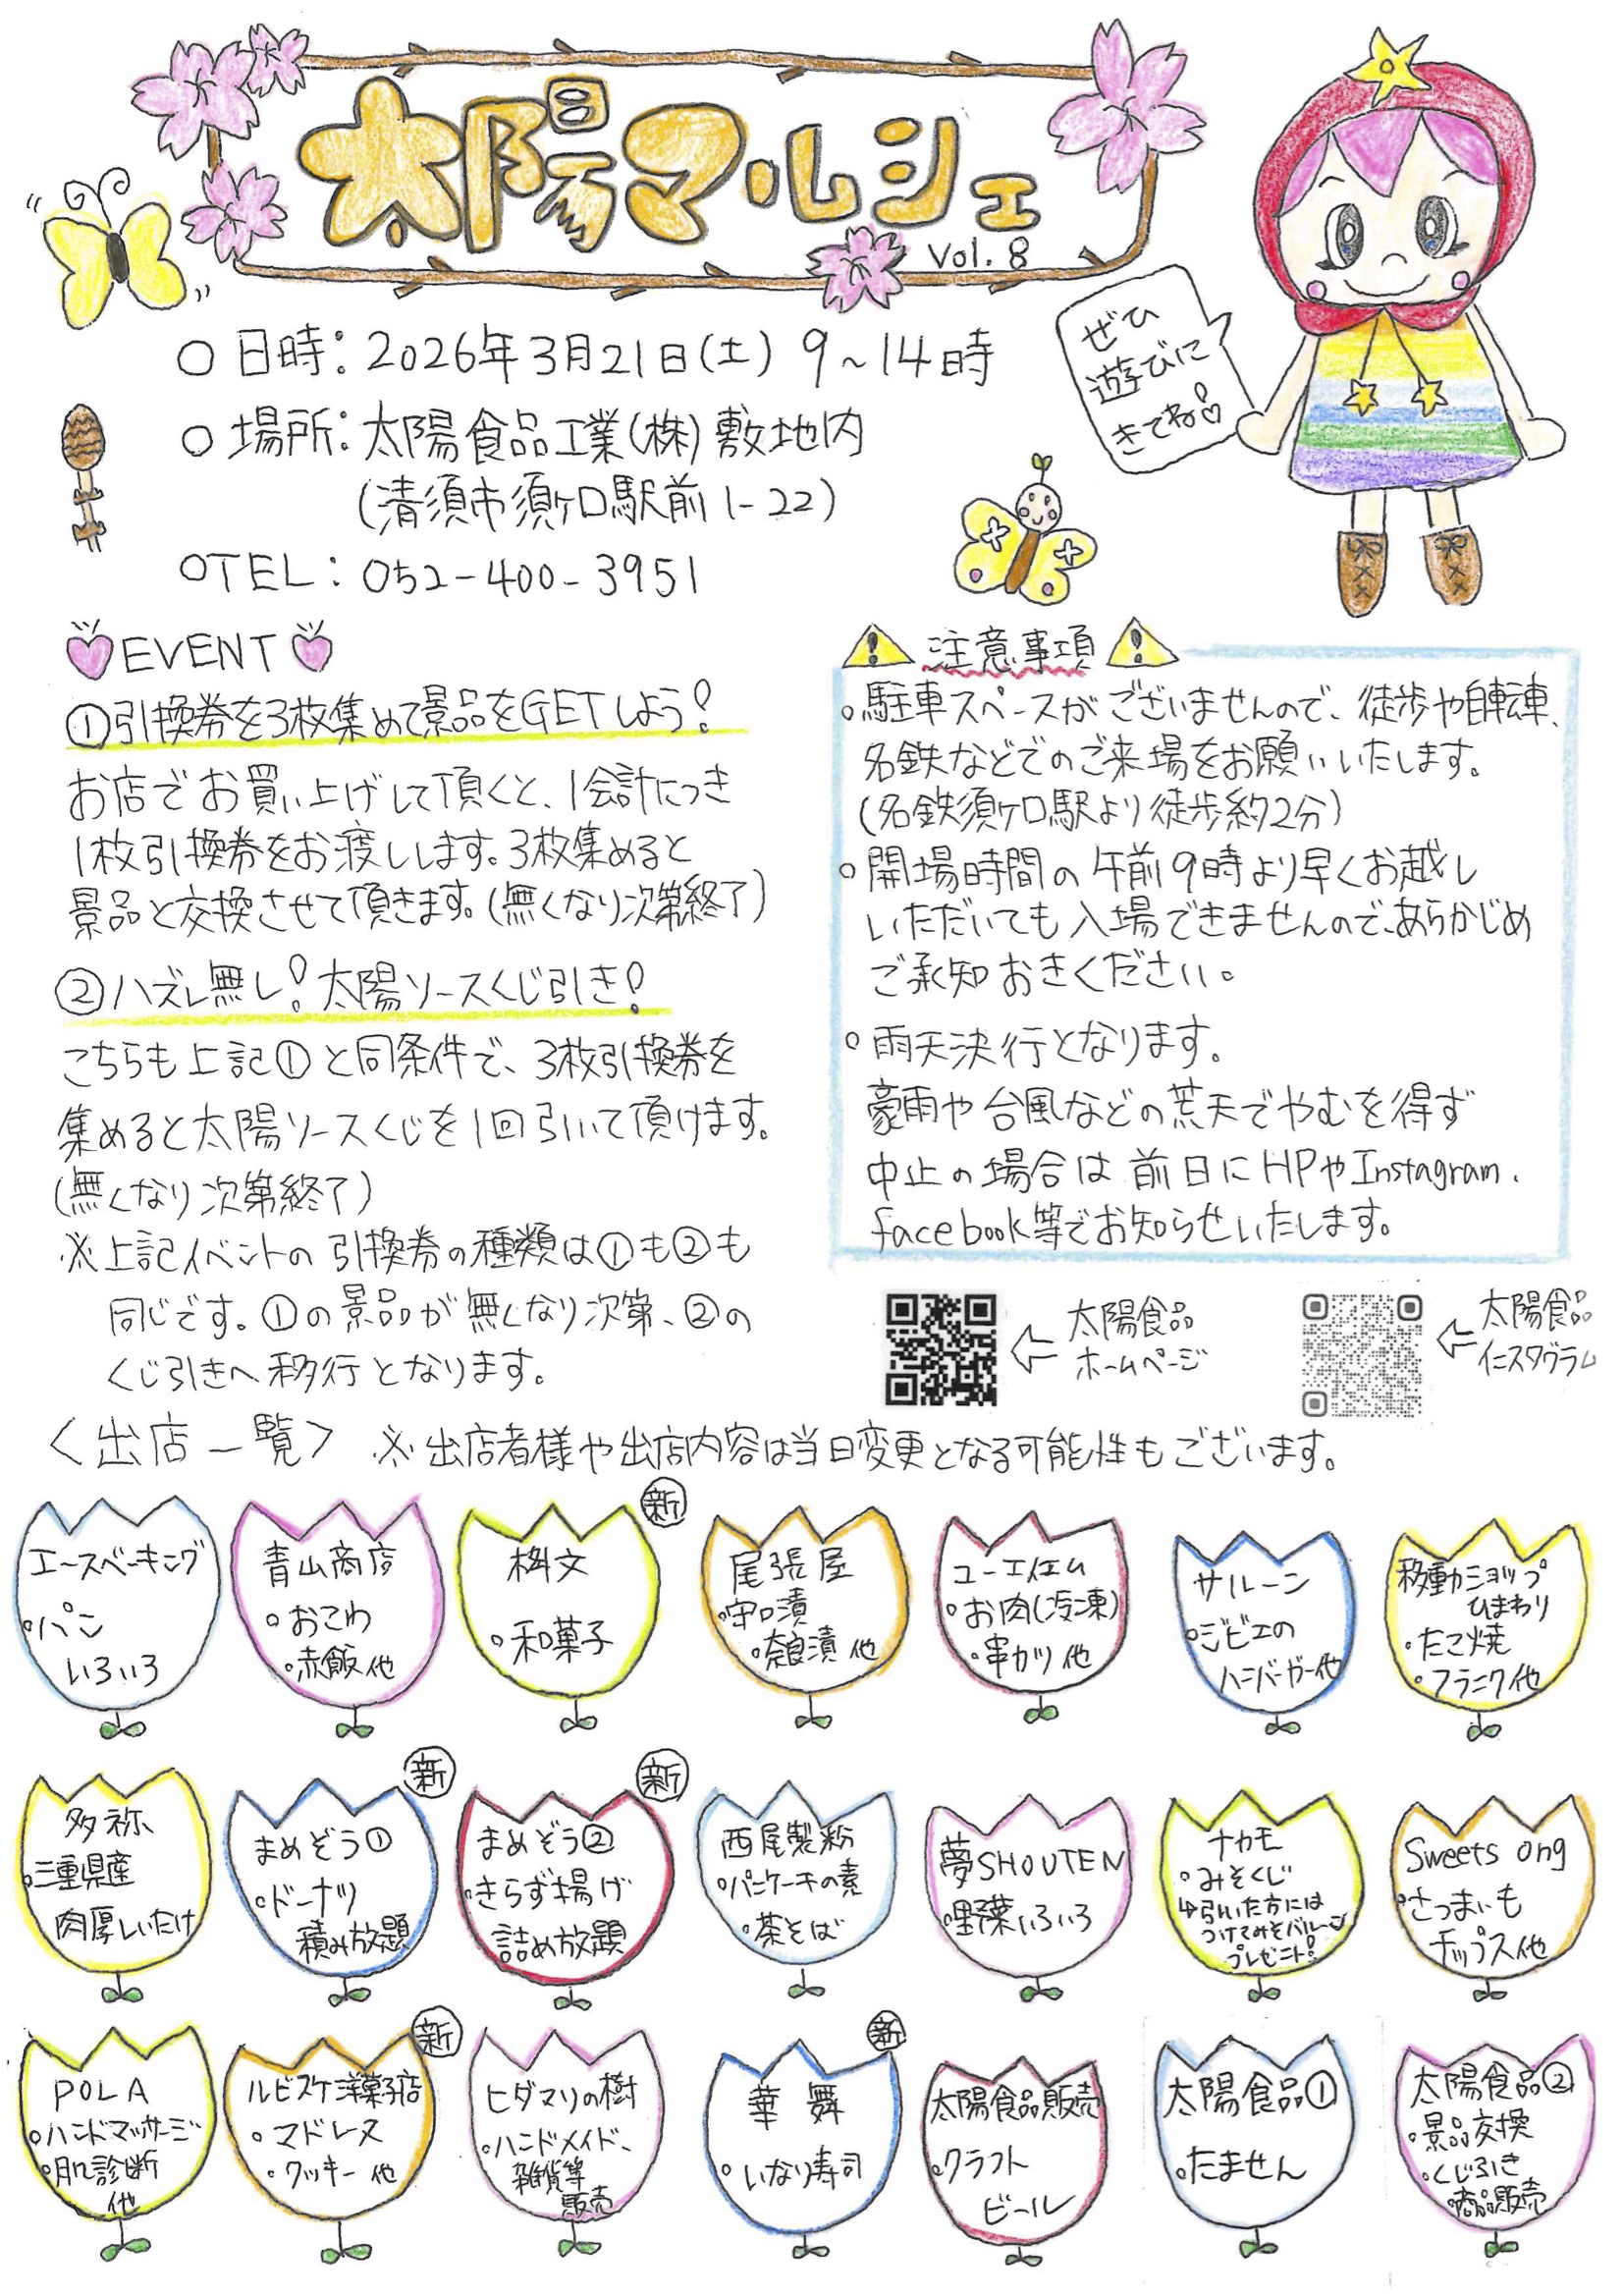 太陽マルシェ
Vol. 8
○ 日時: 2026年3月21日(土) 9~14時
○ 場所: 太陽食品工業(株)敷地内
(清須市須ヶ口駅前1-22)
○TEL: 052-400-3951
ぜひ
遊びに
きてね!
EVENT
①引換券を3枚集めて景品をGETしよう!
お店でお買い上げして頂くと、1会計につき
1枚引換券をお渡しします。3枚集めると
景品と交換させて頂きます。(無くなり次第終了)
②ハズレ無し!太陽ソースくじ引き!
こちらも上記①と同条件で、3枚引換券を
集めると太陽ソースくじを1回引いて頂けます。
(無くなり次第終了)
※上記イベントの引換券の種類は①も②も
同じです。①の景品が無くなり次第、②の
くじ引きへ移行となります。
注意事項
○駐車スペースがございませんので、徒歩や自転車、
名鉄などでのご来場をお願いいたします。
(名鉄須ヶ口駅より徒歩約2分)
○開場時間の午前9時より早くお越し
いただいても入場できませんので、あらかじめ
ご承知おきください。
○雨天決行となります。
豪雨や台風などの荒天でやむを得ず
中止の場合は前日にHPやInstagram.
facebook等でお知らせいたします。
⇦ 太陽食品
ホームページ
⇦ 太陽食品
インスタグラム
<出店一覧> ※出店者様や出店内容は当日変更となる可能性もございます。
エースベーキング
○パン
いろいろ
青山商店
○おこわ
○赤飯 他
新
桝文
○和菓子
尾張屋
○守口漬
○奈良漬 他
ユーエイエム
○お肉(冷凍)
○串カツ 他
サルーン
○ジビエの
ハンバーガー他
移動ショップ
ひまわり
○たこ焼
○フランク他
多祢
○三重県産
肉厚しいたけ
新
まめぞう①
○ドーナツ
積み放題
新
まめぞう②
○きらず揚げ
詰め放題
西尾製粉
○パンケーキの素
○茶そば
夢SHOUTEN
○野菜いろいろ
ナカモ
○みそくじ
↳引いた方には
つけてみそバルーン
プレゼント!
Sweets ong
○さつまいも
チップス他
POLA
○ハンドマッサージ
○肌診断
他
新
ルビスケ洋菓子店
○マドレーヌ
○クッキー 他
ヒダマリの樹
○ハンドメイド、
雑貨等
販売
新
華舞
○いなり寿司
太陽食品販売
○クラフト
ビール
太陽食品①
○たません
太陽食品②
○景品交換
○くじ引き
○商品販売